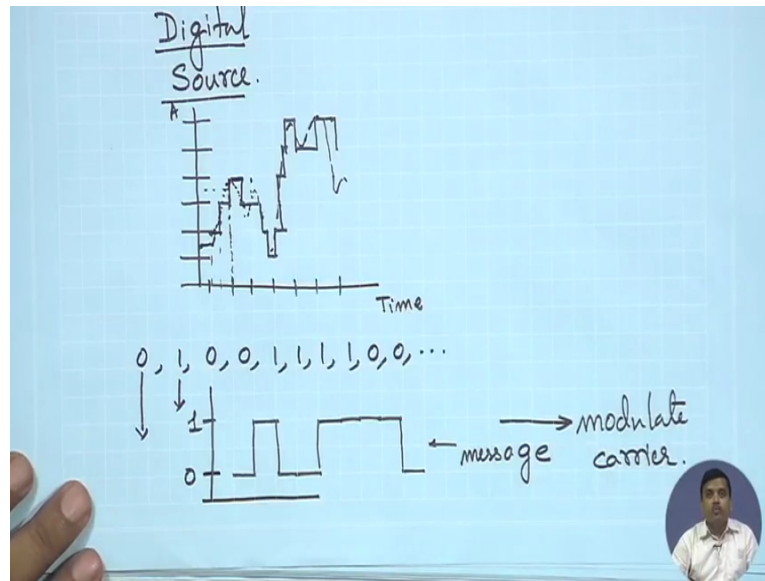 Digital
Source.
A
Time
0, 1, 0, 0, 1, 1, 1, 1, 0, 0, ...
1
0
message
modulate
carrier.